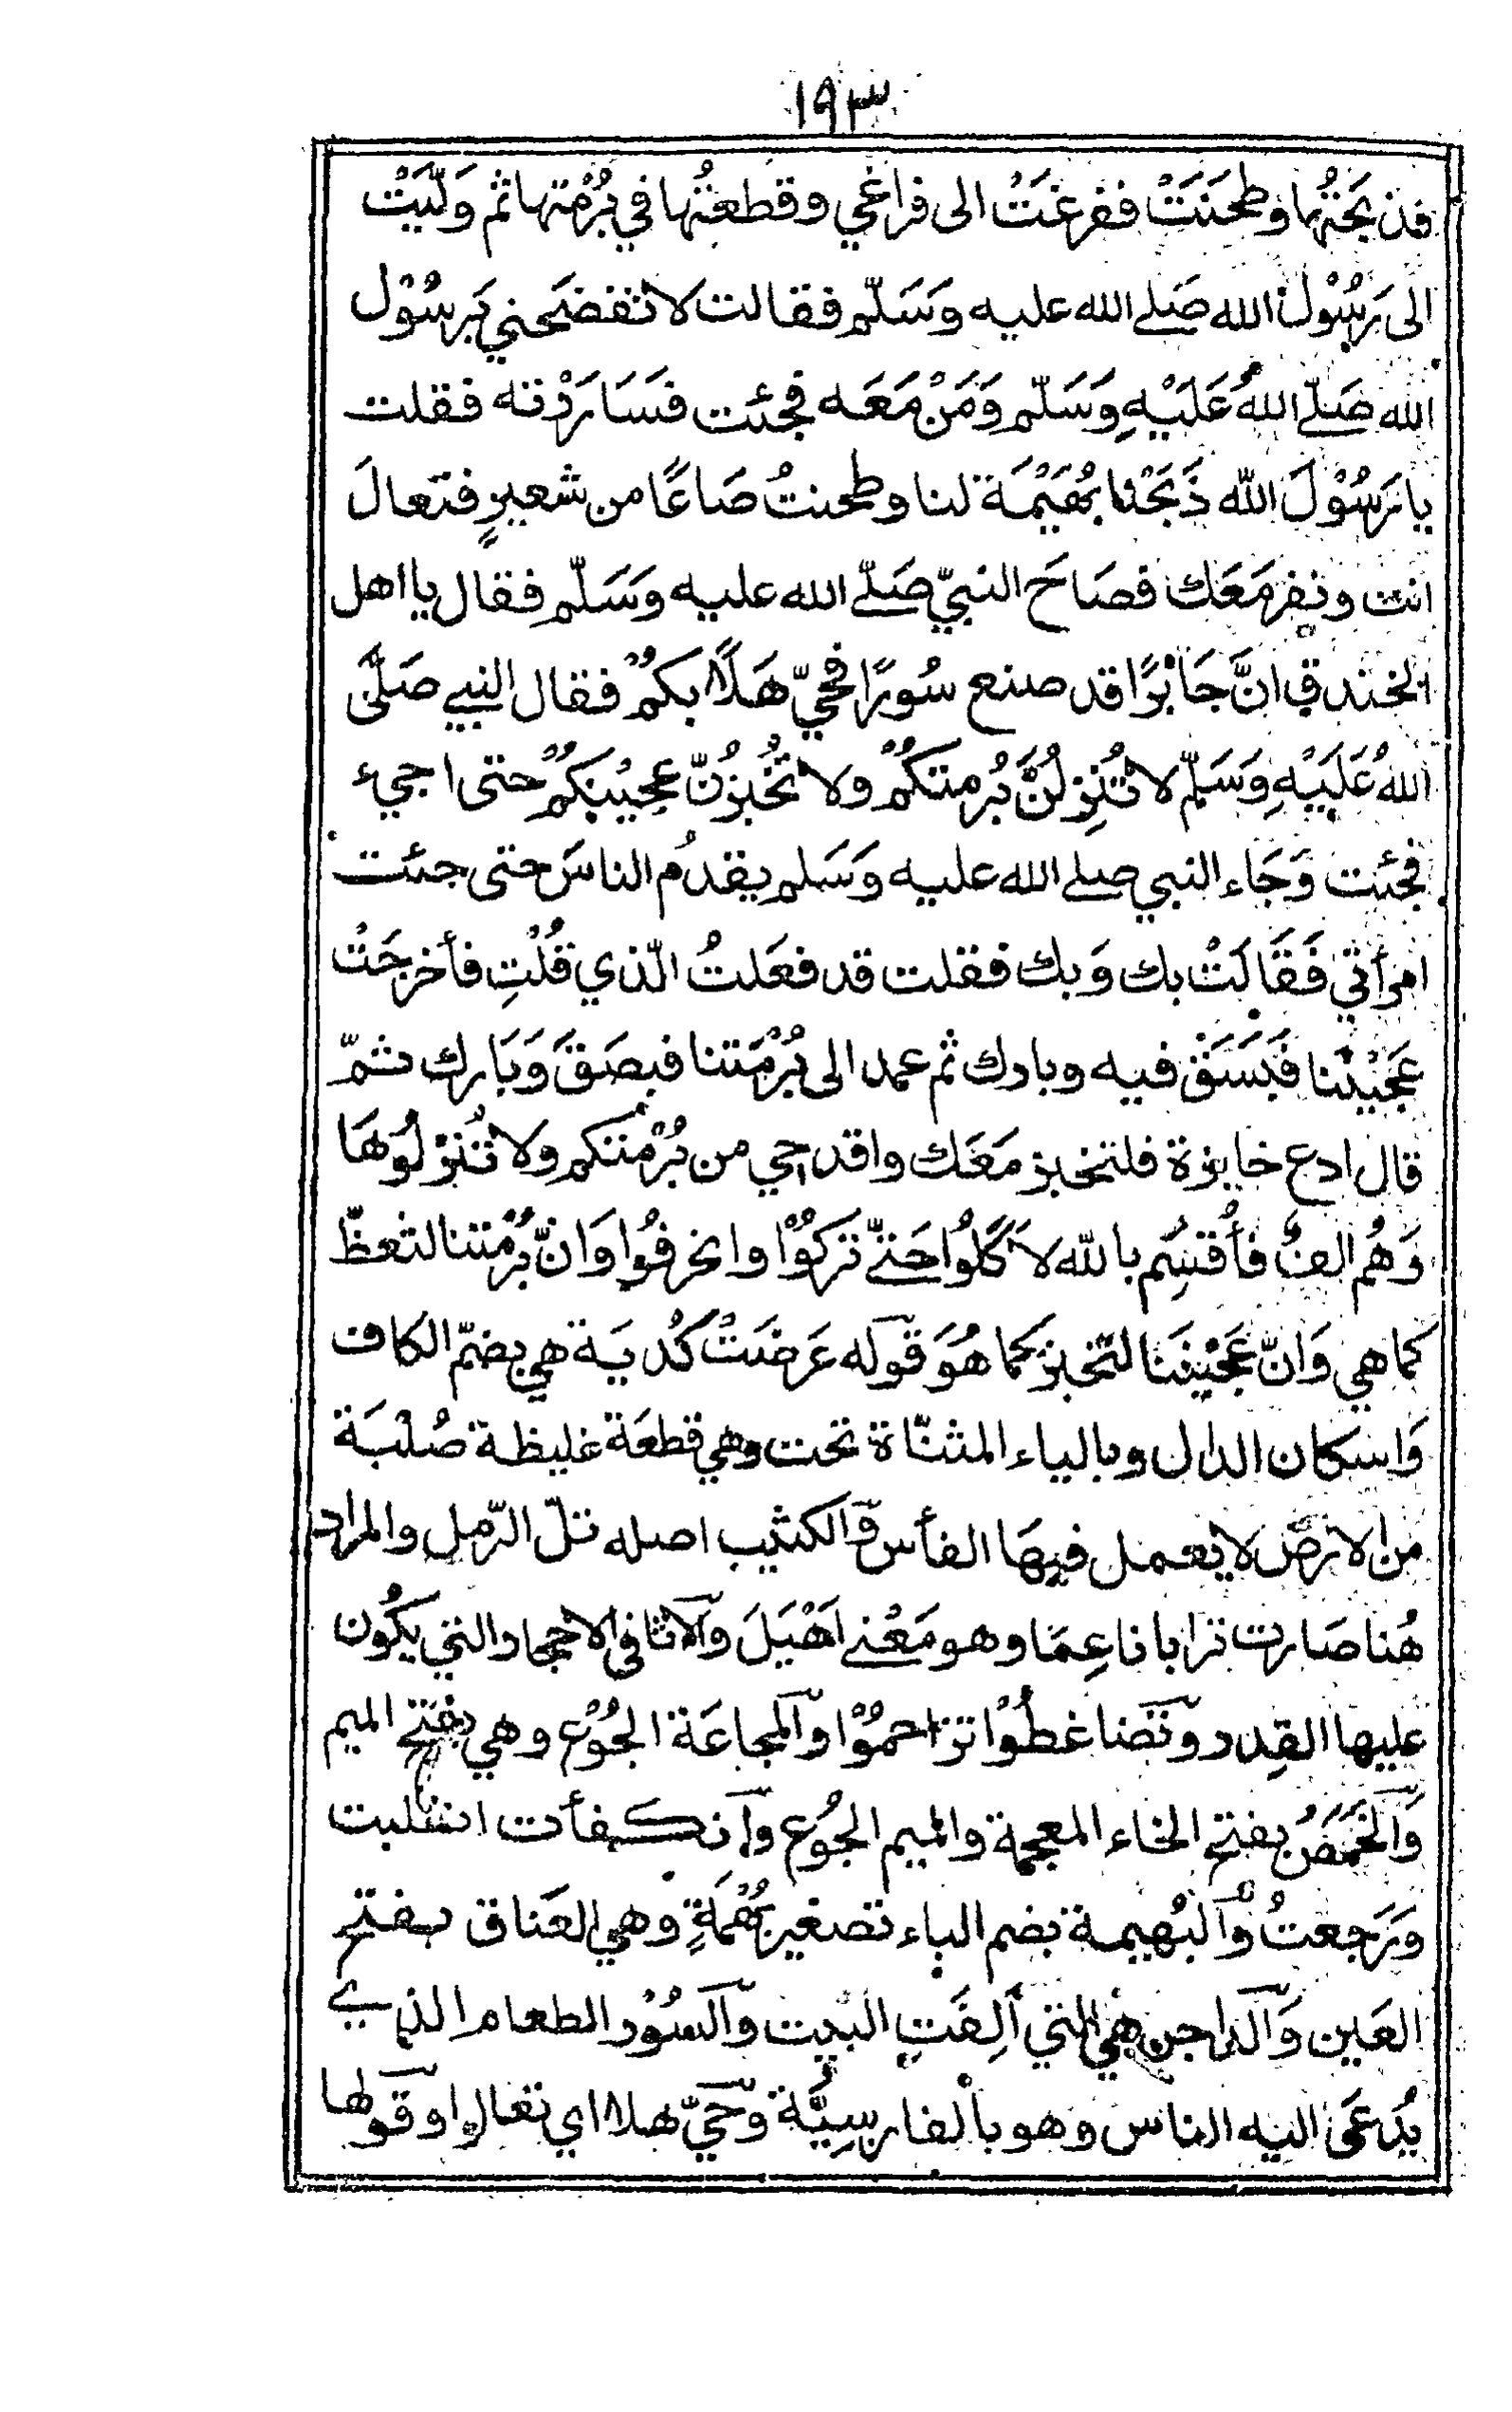 ١٩٣
فذبحتُها وطحَنَتْ ففرغَتْ الى فراغي وقطعتُها في بُرْمتها ثم وَلّيَتْ
الى رَسُوْل الله صَلى الله عليه وَسَلّم فقالت لا تفضَحني بَرسُوْل
الله صَلّى اللهُ عَلَيْهِ وَسَلّم وَمَنْ مَعَه فجئت فسَارَرْته فقلت
يا رَسُوْلَ اللّه ذَبَحْنا بُهَيْمَة لنا وطحنتُ صَاعًا من شعيرٍ فتعالَ
انت ونفر مَعَك فصَاحَ النبيّ صَلّى الله عليه وَسَلّم فقال يا اهل
الخندق انَّ جَابرًا قد صنع سُورًا فحيّ هَلًا بكمُْ فقال النبي صَلَّى
اللهُ عَلَيْهِ وَسَلّم لا تُنزِلُنَّ بُرمتكُمْ ولا تُخبزُنّ عجيْنكُمْ حتى اجيء
فجئت وَجَاء النبي صلى الله عليه وَسَلم يقدُم الناسَ حتى جئت
امرأتي فَقَالَتْ بك وَبك فقلت قد فعَلتُ الّذي قُلْتِ فأخرجَتْ
عَجيْننا فبَسَقَ فيه وبارك ثم عمد الى بُرْمَتنا فبصَقَ وَبَارك ثمّ
قال ادع خابزة فلتخبز مَعَك واقدحي من بُرْمتكم ولا تُنزْلُوهَا
وَهُم الفٌ فأُقسِم باللّه لأكلُوا حَتّى تركوُْا وانحرفُوا وَانّ بُرْمتنا لتغطّ
كما هي وَانّ عَجيْنَنَا لتخبز كما هُوَ قوله عَرضَتْ كُدْيَة هي بضمّ الكاف
وَاسكان الدال وبالياء المثنّاة تحت وهي قطعَة غليظة صُلْبَة
من الارضْ لا يعمل فيهَا الفأس والكثيب اصله تلّ الرّمل والمراد
هُنا صَارت ترابا ناعِمَا وهو مَعْنى اَهْيَلَ والاثافى الاحجار التي يكُون
عليها القِدر وتضَاغطُوْا تزاحموُْا والمجاعَة الجُوْع وهي بفتح الميم
وَالخَمَصُ بفتح الخاء المعجمة والميم الجُوع وانكفأت انقلبت
وَرَجعتُ والبُهيمة بضم الباء تصغير بُهْمَةٍ وهي العَناق بفتح
العَين وَالداجن هي التي اَلِفَتِ البَيت والسُوْر الطعام الذي
يُدعَى اليه الناس وهو بالفارسِيَّة وحَيّ هلا اي تعالوا وقولها